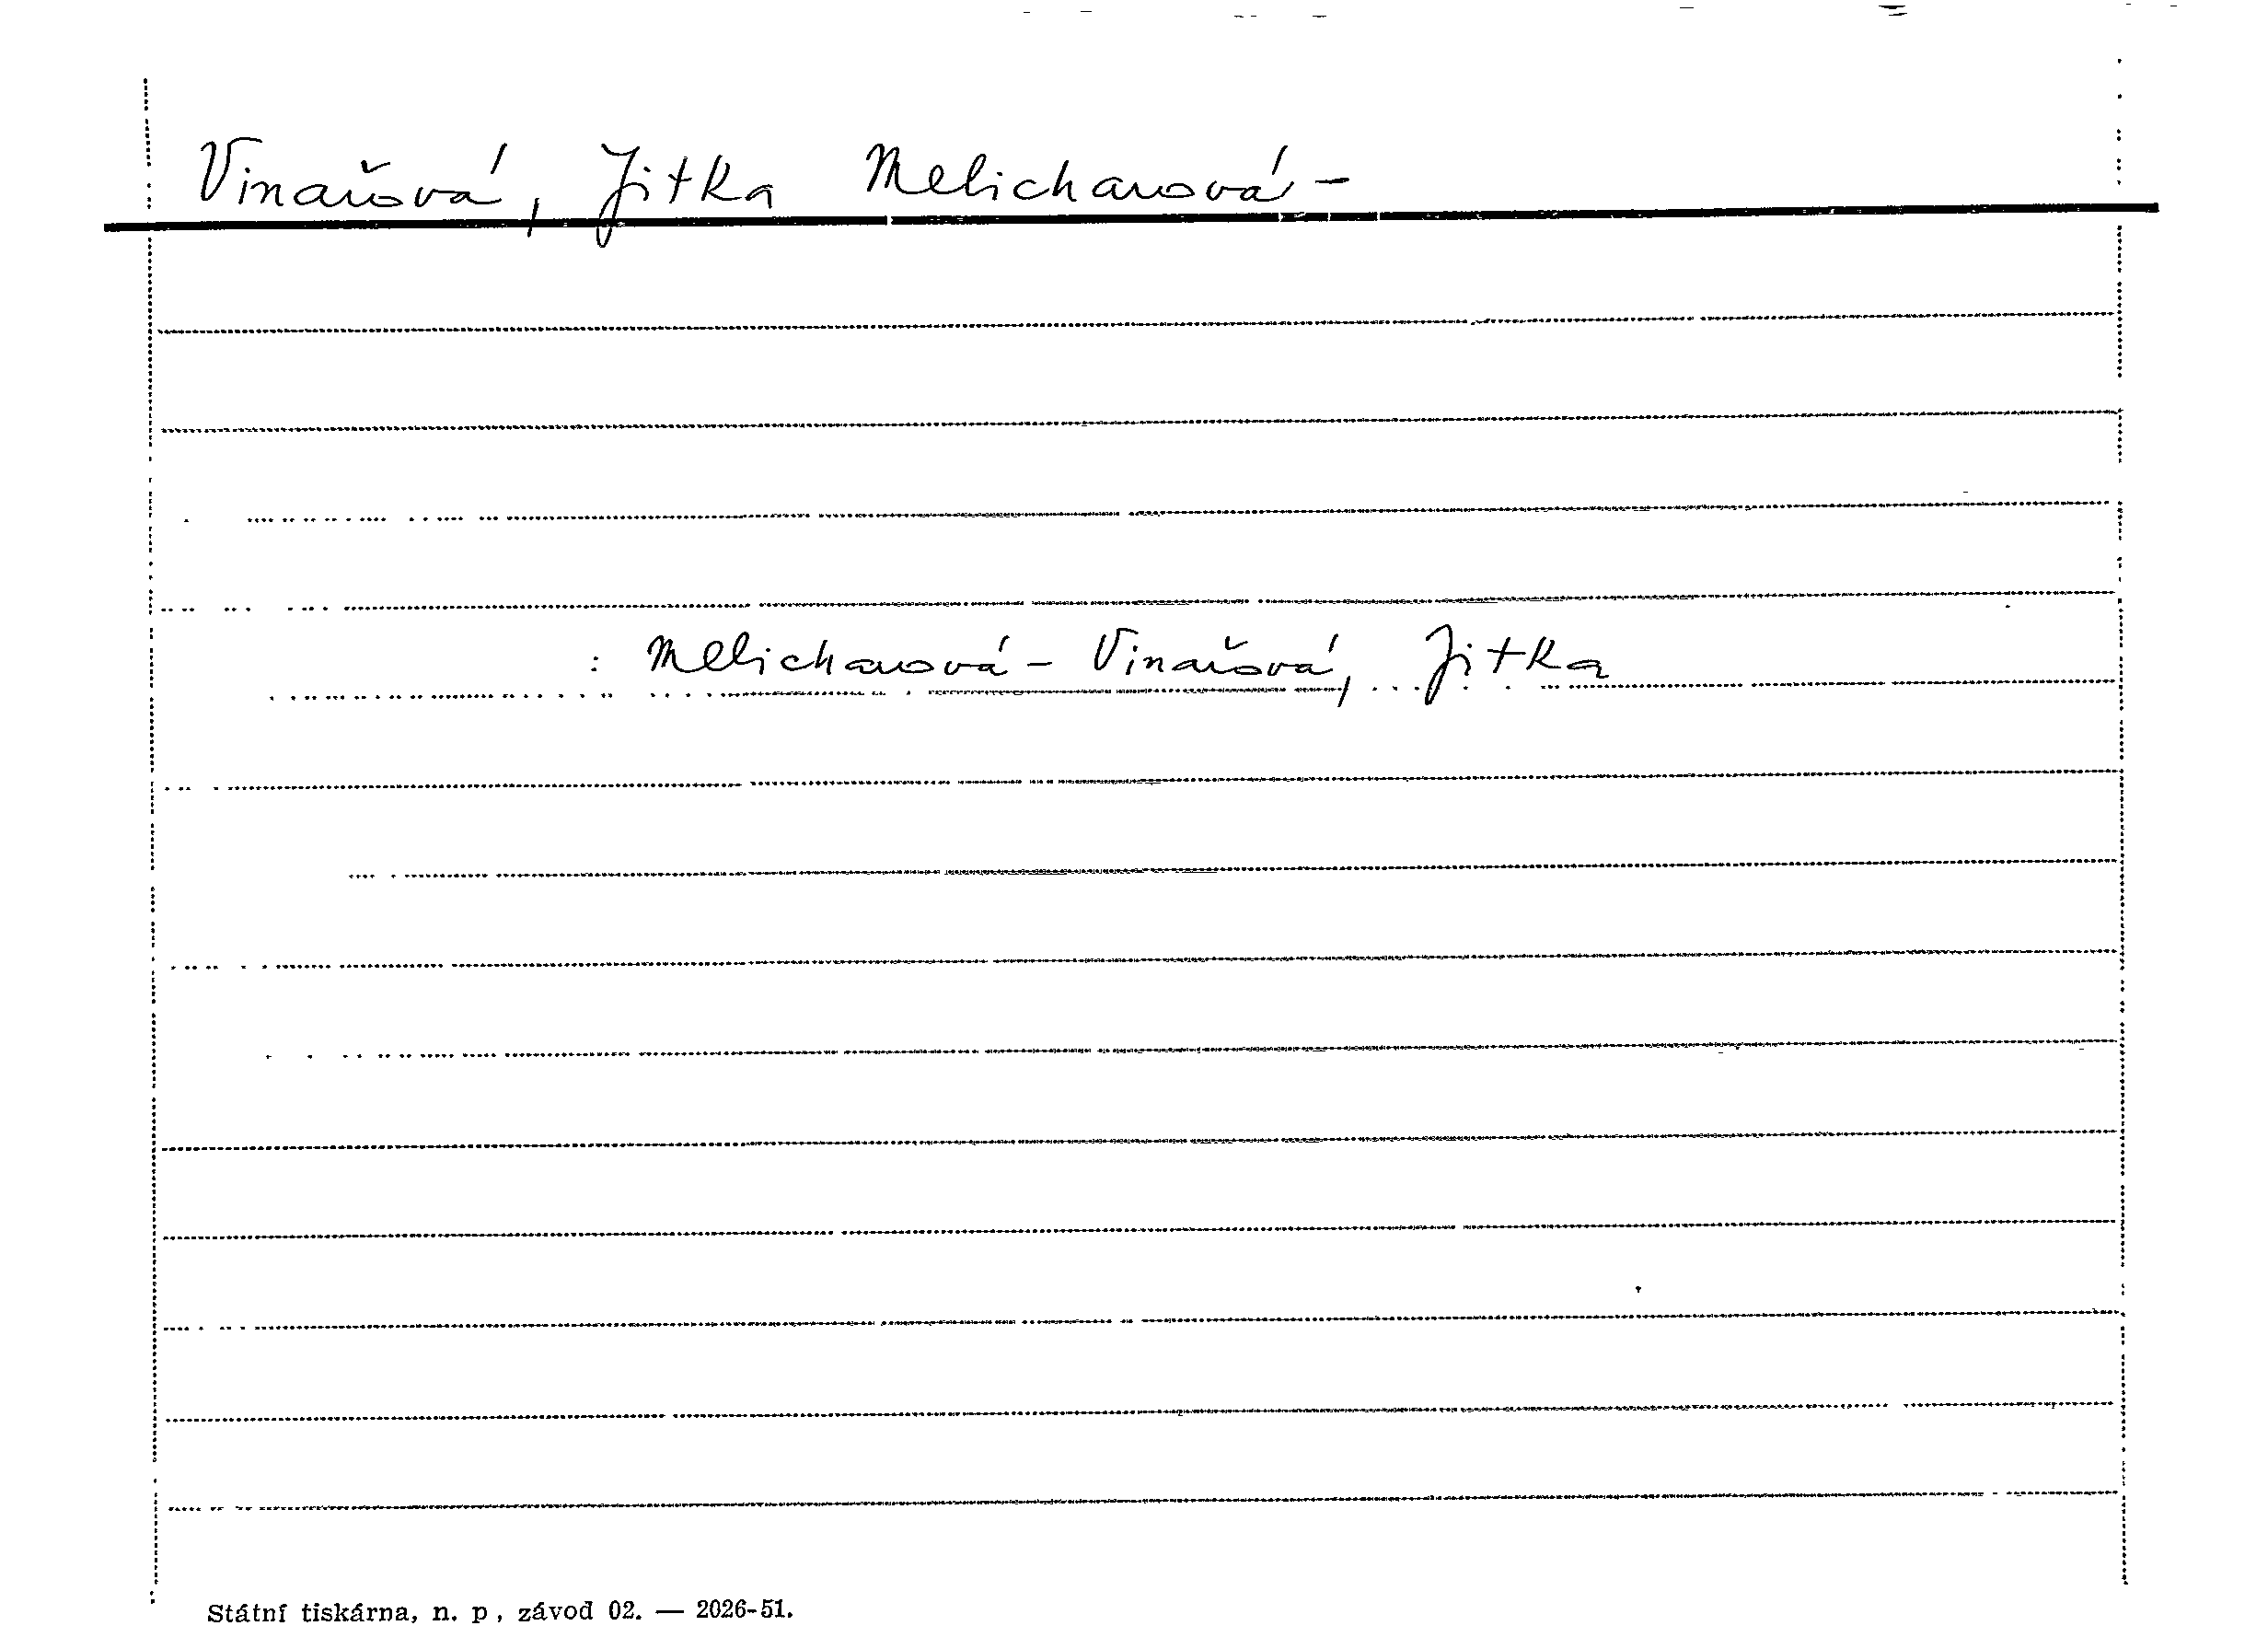 Vinařová, Jitka Melicharová -
: Melicharová - Vinařová, Jitka
Státní tiskárna, n. p, závod 02. — 2026-51.